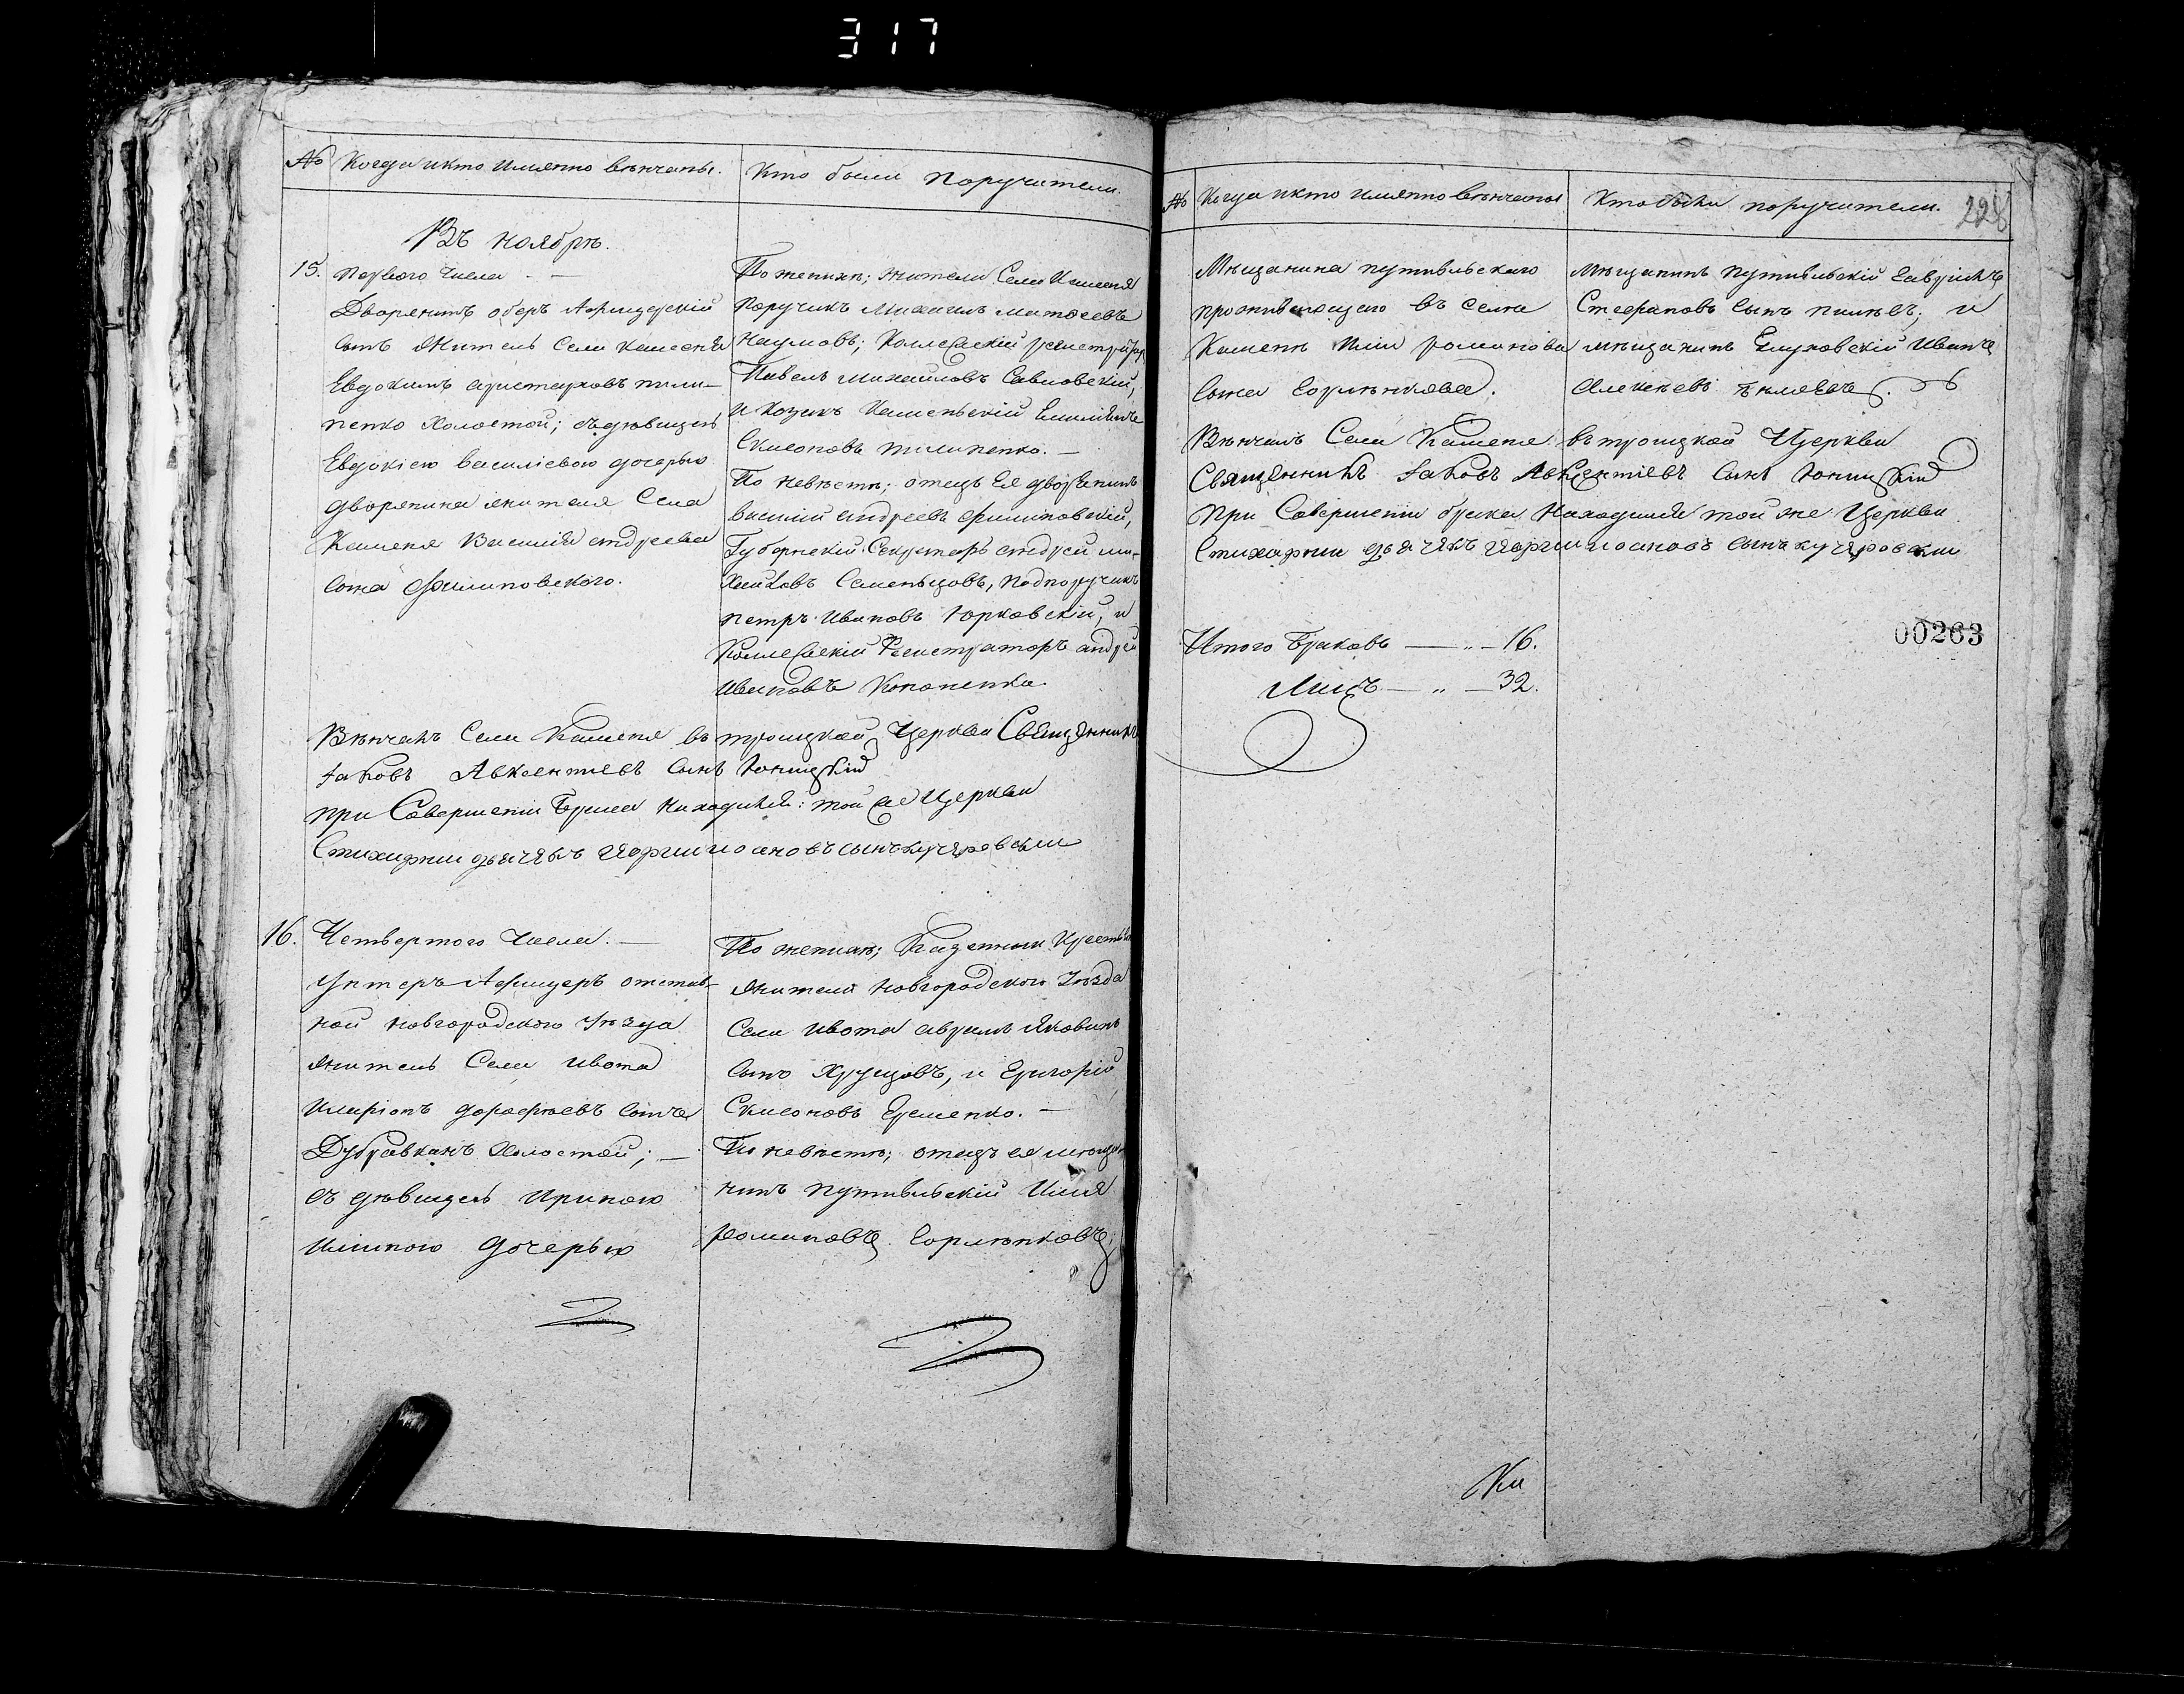 317
№ Когда и кто имянно вѣнчаны. Кто были поручители.
Въ ноябрѣ.
15. Первого числа. —
Дворянинъ оберъ Афицерскій
сынъ житель Села Каменя
Евдокимъ Аристарховъ пили-
пенко холостой; съ дѣвицею
Евдокіею Василіевою дочерью
дворянина жителя Села
Каменя Василія Андреева
сына Филиповского.
По женихѣ; жители Села Каменя
Поручикъ Михаилъ Матвеевъ
Наумовъ; Коллежскій регистраторъ
Павелъ Михайловъ Савловскій,
и Козакъ Каменьскій Емиліянъ
Симоновъ пилипенко. —
По невѣсти; отецъ ея дворянинъ
Василій Андреевъ Филиповскій,
Губернскій Секретарь Андрей ми-
хайловъ Семеньцовъ, подпоручикъ
петръ Ивановъ Юрковскій, и
Коллежскій Регистраторъ андрей
Ивановъ Кононенко.
Вѣнчалъ Села Каменя въ троицкой Церкви Священникъ
Іаковъ Авксентіевъ сынъ Юницкій
при Совершеніи Брака находился: той же Церкви
Стихарний дьячекъ Георгий иоановъ сынъ кучеровский
16. Четвертого числа. —
Унтеръ Афицеръ отстав-
ной новгородского уѣзда
житель Села Ивота
Иларіонъ дорофѣевъ сынъ
Дубравкинъ холостой; —
съ дѣвицею Ириною
Иліиною дочерью
По женихѣ; Казенныи Крестьяне
жители новгородского Уѣзда
Села Ивота аврамъ Яковинъ
сынъ Хрущовъ, и Григорій
Симоновъ Еременко. —
По невѣстѣ; отецъ ея мѣща-
нинъ путивльскій Илія
романовъ Горлѣнковъ;
№ Когда и кто имянно вѣнчаны Кто были поручители. 228
Мѣщанина путивльского
проживающего въ селѣ
Каменѣ Иліи романова
сына Горлѣнкова.
мѣщанинъ путивльскій Гавріилъ
Стефановъ сынъ ; и
мѣщанинъ Глуховскій Иванъ
Алексѣевъ Бѣляевъ.
Вѣнчалъ Села Каменя въ троицкой Церкви
Священникъ Іаковъ Авксентіевъ сынъ Юницкій
при Совершеніи брака находился той же Церкви
Стихарний дьячекъ Георгий иоановъ сынъ кучеровский
Итого Браковъ — „ — 16.
Лицъ — „ — 32.
00263